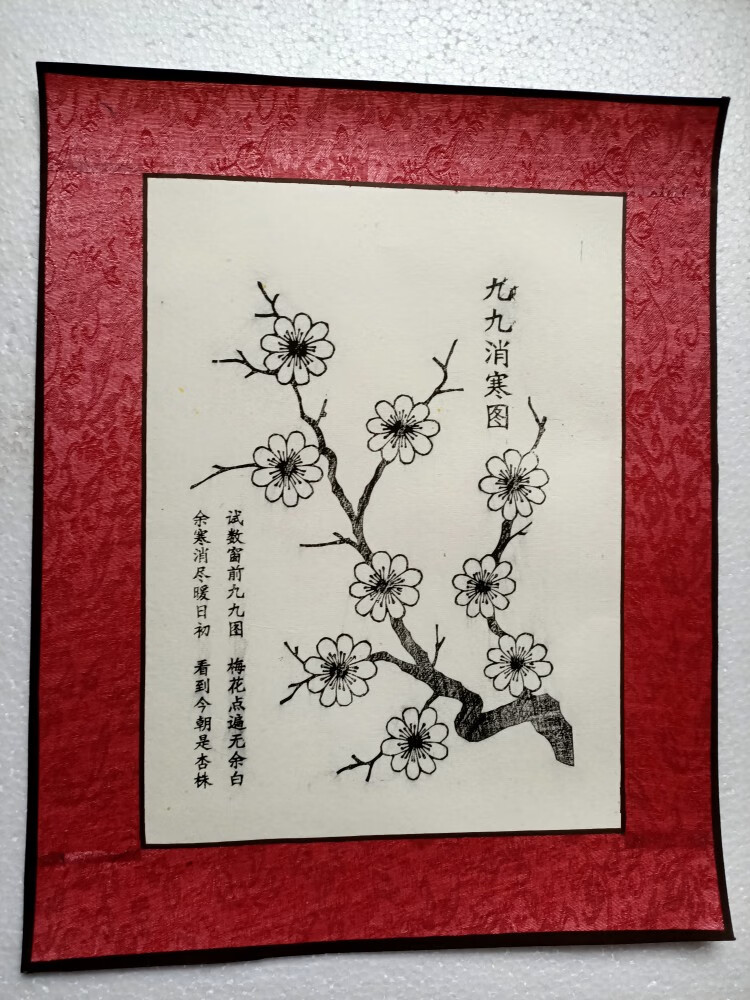 九九消寒图
试数窗前九九图 梅花点遍无余白
余寒消尽暖日初 看到今朝是杏株